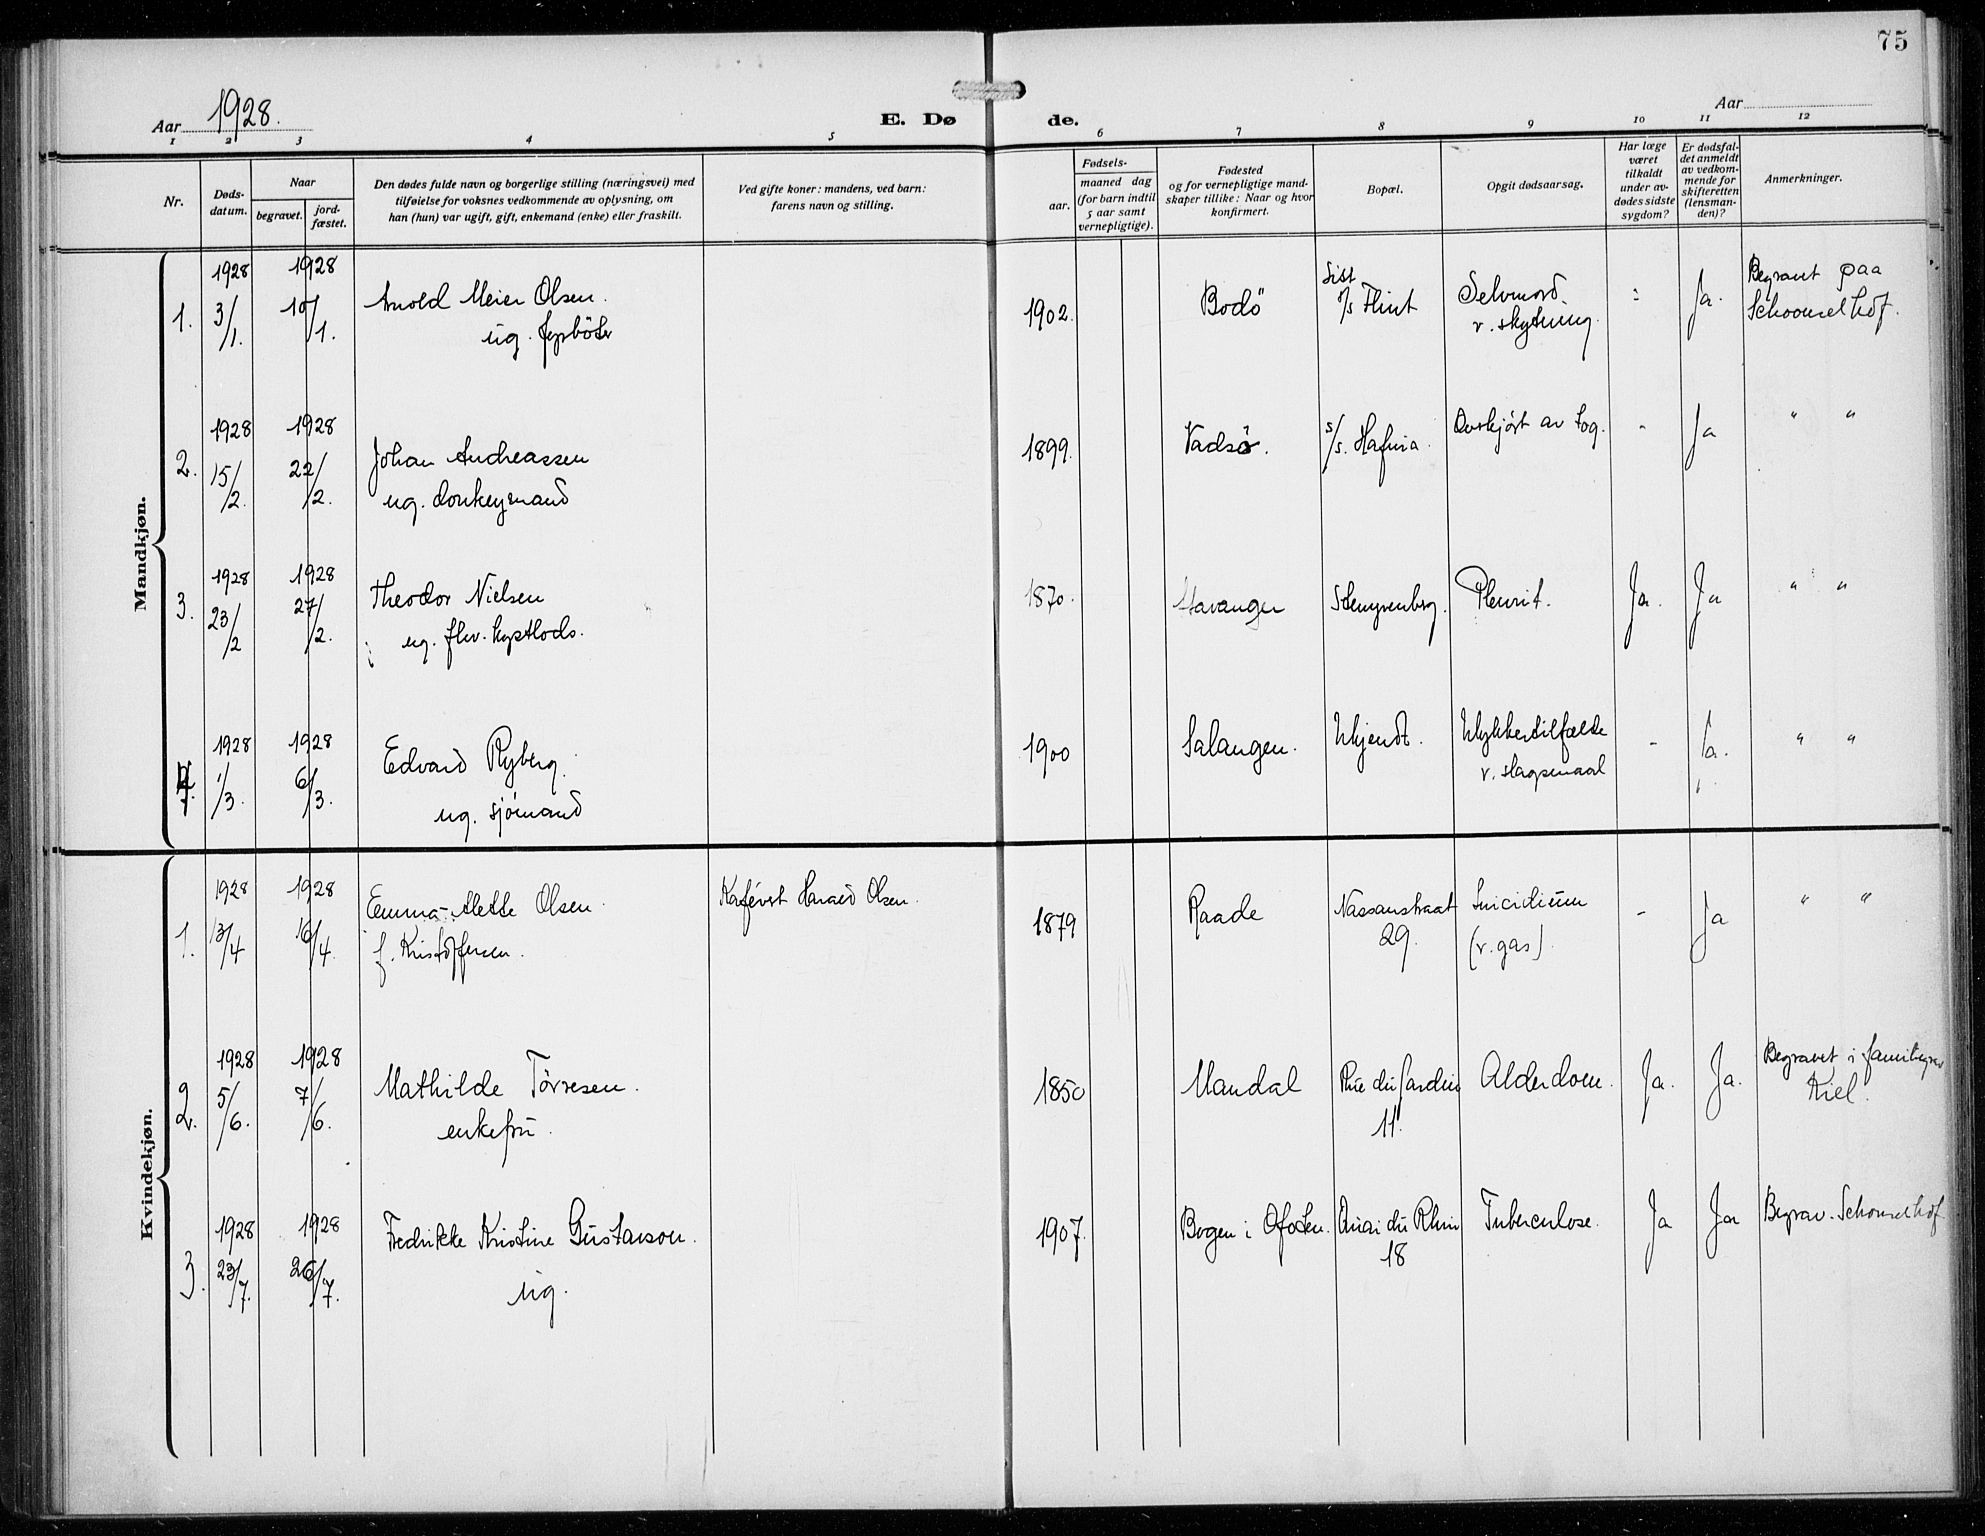 75
Aar 1928.
E. Dø de.
Aar
1 2 3 4 5 6 7 8 9 10 11 12
Nr.
Døds-
datum.
Naar
begravet.
jord-
fæstet.
Den dødes fulde navn og borgerlige stilling (næringsvei) med
tilføielse for voksnes vedkommende av oplysning, om
han (hun) var ugift, gift, enkemand (enke) eller fraskilt.
Ved gifte koner: mandens, ved barn:
farens navn og stilling.
Fødsels-
aar.
maaned dag
(for barn indtil
5 aar samt
vernepligtige).
Fødested
og for vernepligtige mand-
skaper tillike: Naar og hvor
konfirmert.
Bopæl.
Opgit dødsaarsag.
Har læge
været
tilkaldt
under av-
dødes sidste
sygdom?
Er dødsfal-
det anmeldt
av vedkom-
mende for
skifteretten
(lensman-
den)?
Anmerkninger.
Mandkjøn.
1. 1928 3/1. 1928 10/1. Arnold Meier Olsen.
ug. fyrböter
1902. Bodö Sist
s/s Flint Selvmord
v. skytning : Ja. Begravet paa
Schoonselhof.
2. 1928 15/2. 1928 22/2. Johan Andreassen
ug. donkeymand
1899. Vadsø. s/s. Hafnia. Overkjört av tog. - Ja " "
3. 1928 23/2 1928 27/2. Theodor Nielsen
ug. fhv. kystlods.
1870. Stavanger Pleurit. Ja. Ja " "
4. 1928 1/3. 1928 6/3. Edvard Ryberg.
ug. sjömand
1900 Salangen. Ukjendt. Ulykkestilfælde
v. slagsmaal - Ja. " "
Kvindekjøn.
1. 1928 13/4 1928 16/4. Emma Mette Olsen.
f. Kristoffersen.
Kafévert Harald Olsen.
1879 Raade Nassaustraat
29. Suicidium
(v. gas) - Ja " "
2. 1928 5/6. 1928 7/6. Mathilde Törresen.
enkefru.
1850 Mandal Rue du Jardin
11. Alderdom. Ja. Ja. Begravet i familiegrav
Kiel.
3. 1928 23/7. 1928 26/7. Fredrikke Kristine Gustavson.
ug.
1907. Bogen i Ofoten. Quai du Rhin
18 Tuberculose. Ja Ja Begrav. Schoonselhof